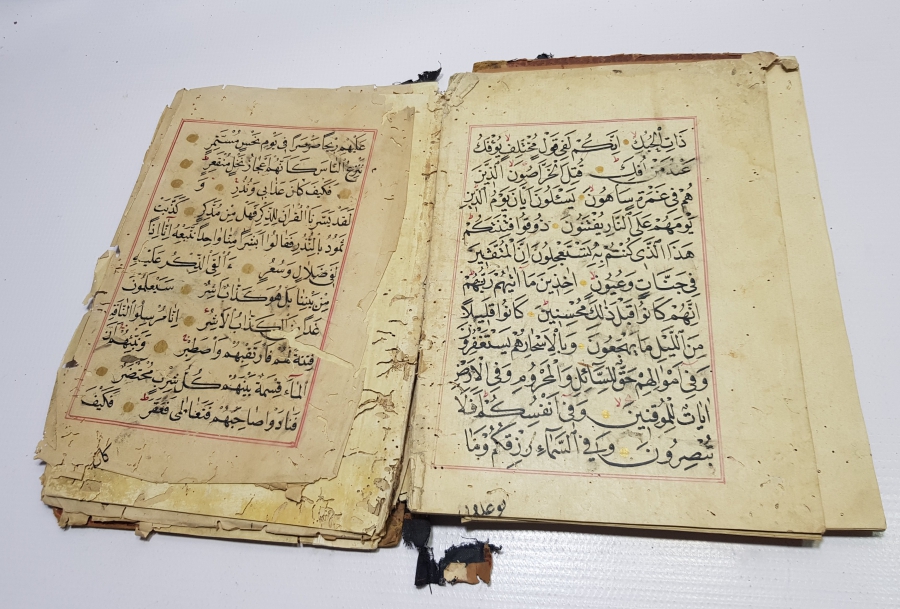 ذات الحبك انكم لفي قول مختلف يؤفك
عنه من افك قتل الخراصون الذين
هم في غمرة ساهون يسئلون ايان يوم الدين
يوم هم على النار يفتنون ذوقوا فتنتكم
هذا الذي كنتم به تستعجلون ان المتقين
في جنات وعيون اخذين ما اتيهم ربهم
انهم كانوا قبل ذلك محسنين كانوا قليلا
من الليل ما يهجعون وبالاسحار هم يستغفرون
وفي اموالهم حق للسائل والمحروم وفي الارض
ايات للموقنين وفي انفسكم افلا
تبصرون وفي السماء رزقكم وما
توعدون
عليهم ريحا صرصرا في يوم نحس مستمر
تنزع الناس كانهم اعجاز نخل منقعر
فكيف كان عذابي ونذر و
لقد يسرنا القران للذكر فهل من مدكر كذبت
ثمود بالنذر فقالوا ابشرا منا واحدا نتبعه انا اذا
لفي ضلال وسعر ءالقي الذكر عليه
من بيننا بل هو كذاب اشر سيعلمون
غدا من الكذاب الاشر انا مرسلوا الناقة
فتنة لهم فارتقبهم واصطبر ونبئهم ان
الماء قسمة بينهم كل شرب محتضر
فنادوا صاحبهم فتعاطى فعقر فكيف